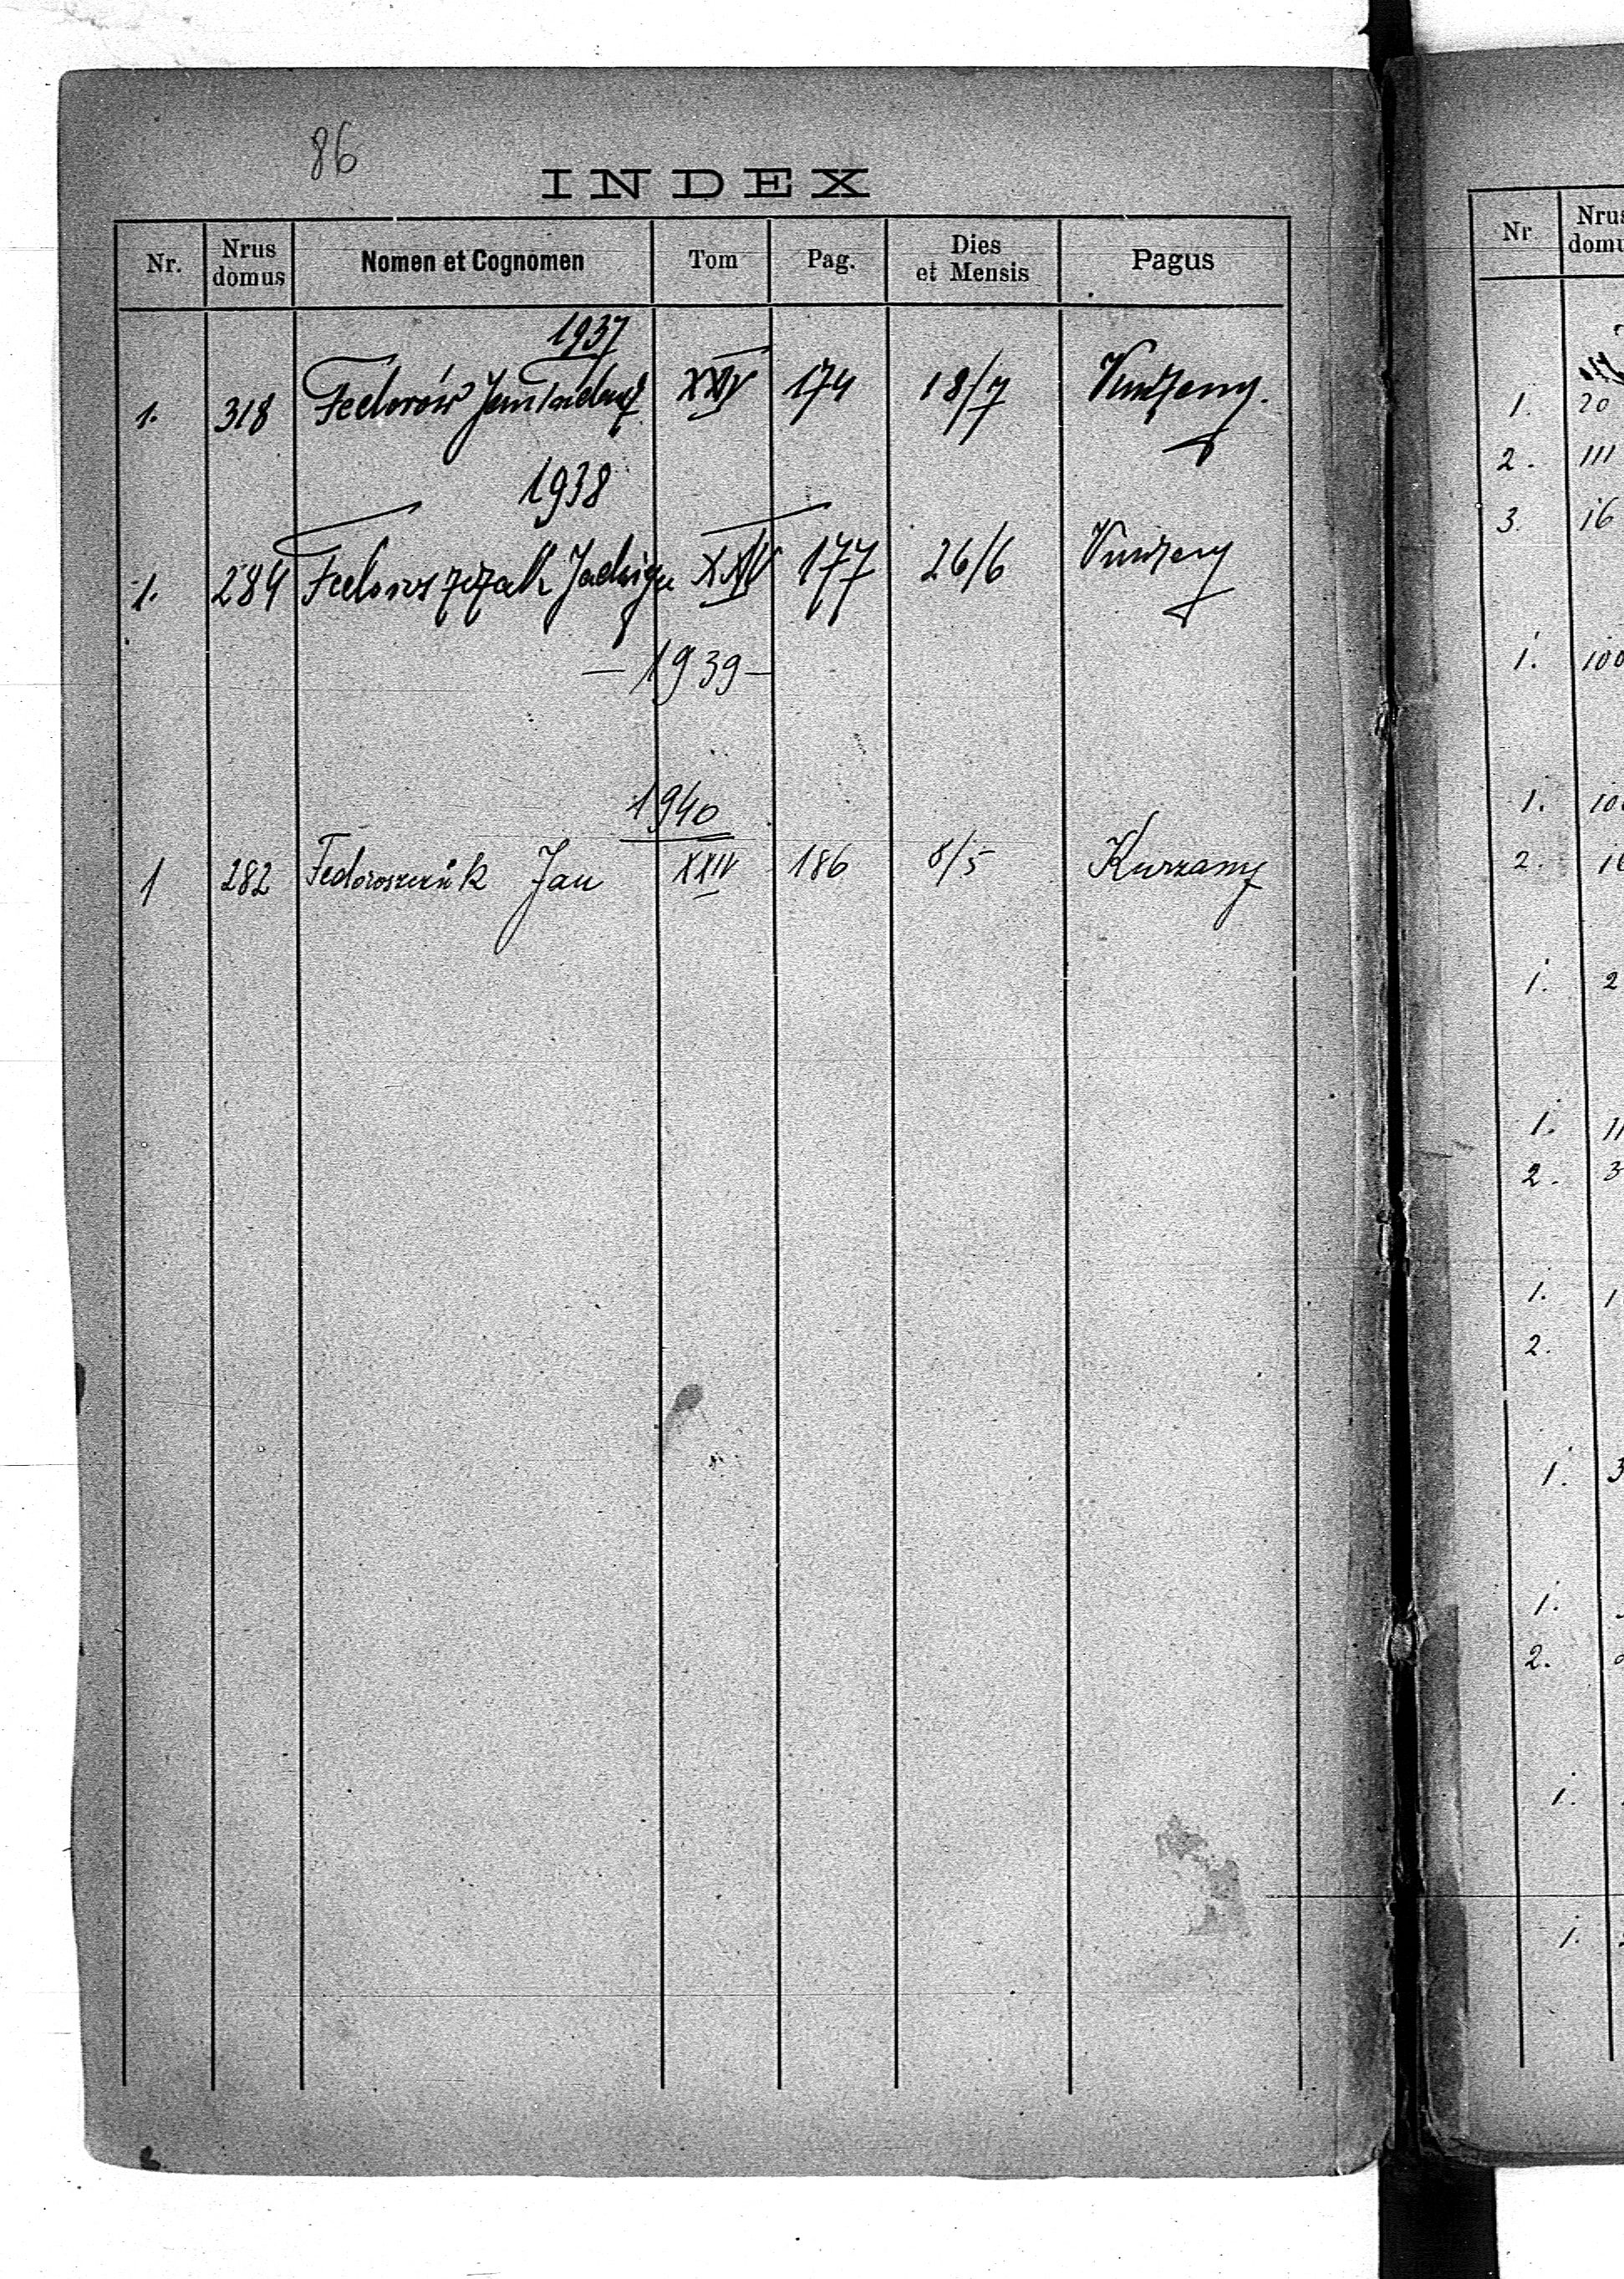 86
INDEX
Nr. Nrus domus Nomen et Cognomen Tom Pag. Dies et Mensis Pagus
1937
1. 318 Fedorów Jan Tadeusz XXIV 174 18/7 Kurzany.
1938
1. 284 Fedoroszczak Jadwiga XXIV 177 26/6 Kurzany
— 1939 —
1940
1 282 Fedoroszczak Jan XXIV 186 8/5 Kurzany
Nr
1. 20
2. 111
3. 16
1. 100
1.
2.
1. 2
1.
2. 3
1. 1
2.
1. 3
1.
2.
1.
1.